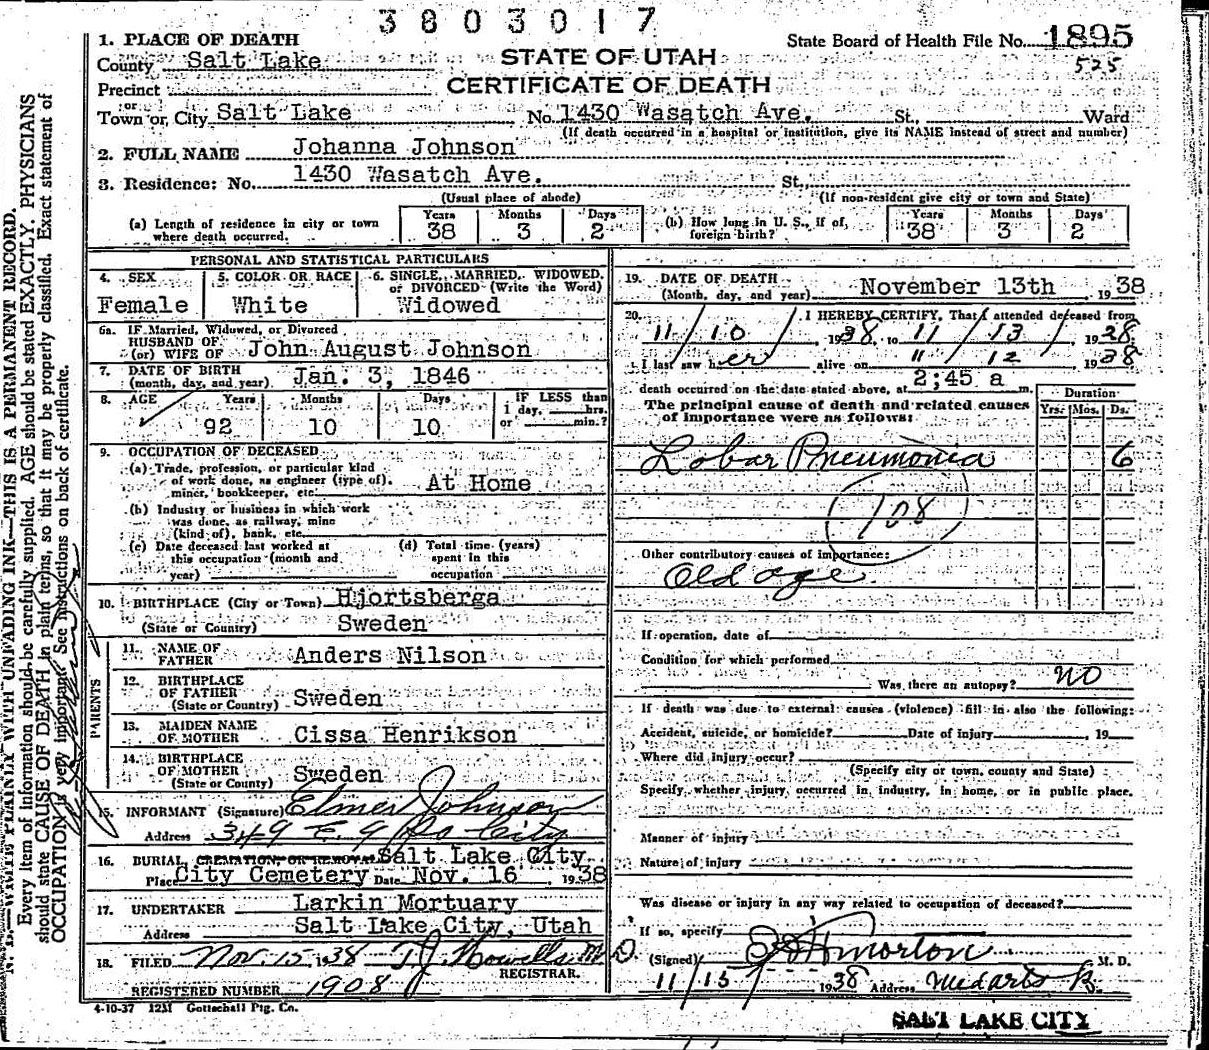 3803017
State Board of Health File No. 1895
525
STATE OF UTAH
CERTIFICATE OF DEATH
1. PLACE OF DEATH
County Salt Lake
Precinct
or
Town or City Salt Lake No. 1430 Wasatch Ave. St., Ward
(If death occurred in a hospital or institution, give its NAME instead of street and number)
2. FULL NAME Johanna Johnson
3. Residence: No. 1430 Wasatch Ave. St.
(Usual place of abode) (If non-resident give city or town and State)
(a) Length of residence in city or town where death occurred. Years 38 Months 3 Days 2
(b) How long in U. S., if of foreign birth? Years 38 Months 3 Days 2
PERSONAL AND STATISTICAL PARTICULARS
4. SEX Female
5. COLOR OR RACE White
6. SINGLE, MARRIED, WIDOWED, or DIVORCED (Write the Word) Widowed
6a. IF Married, Widowed, or Divorced
HUSBAND OF
(or) WIFE OF John August Johnson
7. DATE OF BIRTH
(month, day, and year) Jan. 3, 1846
8. AGE Years 92 Months 10 Days 10 IF LESS than 1 day, hrs. or min.?
9. OCCUPATION OF DECEASED
(a) Trade, profession, or particular kind
of work done, as engineer (type of),
miner, bookkeeper, etc. At Home
(b) Industry or business in which work
was done, as railway, mine
(kind of), bank, etc.
(c) Date deceased last worked at
this occupation (month and
year)
(d) Total time (years)
spent in this
occupation
10. BIRTHPLACE (City or Town) Hjortsberga
(State or Country) Sweden
PARENTS
11. NAME OF
FATHER Anders Nilson
12. BIRTHPLACE
OF FATHER
(State or Country) Sweden
13. MAIDEN NAME
OF MOTHER Cissa Henrikson
14. BIRTHPLACE
OF MOTHER
(State or Country) Sweden
15. INFORMANT (Signature) Elmer Johnson
Address 349 E. 9 So City
16. BURIAL, CREMATION, OR REMOVAL Salt Lake City
Place City Cemetery Date Nov. 16, 1938
17. UNDERTAKER Larkin Mortuary
Address Salt Lake City, Utah
18. FILED Nov. 15 1938 T. J. Howells M. D.
REGISTRAR.
REGISTERED NUMBER 1908
4-10-37 12M Gottschall Ptg. Co.
19. DATE OF DEATH
(Month, day, and year) November 13th, 1938
20. I HEREBY CERTIFY, That I attended deceased from
11/10, 1938, to 11/13/, 1938.
I last saw her alive on 11/12 1938
death occurred on the date stated above, at 2;45 a m.
The principal cause of death and related causes
of importance were as follows:
Duration
Yrs. Mos. Ds.
Lobar Pneumonia 6
108
Other contributory causes of importance:
Old age
If operation, date of
Condition for which performed
Was there an autopsy? no
If death was due to external causes (violence) fill in also the following:
Accident, suicide, or homicide? Date of injury , 19
Where did injury occur?
(Specify city or town, county and State)
Specify whether injury occurred in industry, in home, or in public place.
Manner of injury
Nature of injury
Was disease or injury in any way related to occupation of deceased?
If so, specify
(Signed) Morton M. D.
11/15 1938 Address Med arts B.
SALT LAKE CITY
N. B.—WRITE PLAINLY WITH UNFADING INK—THIS IS A PERMANENT RECORD.
Every item of information should be carefully supplied. AGE should be stated EXACTLY. PHYSICIANS
should state CAUSE OF DEATH in plain terms, so that it may be properly classified. Exact statement of
OCCUPATION is very important. See instructions on back of certificate.